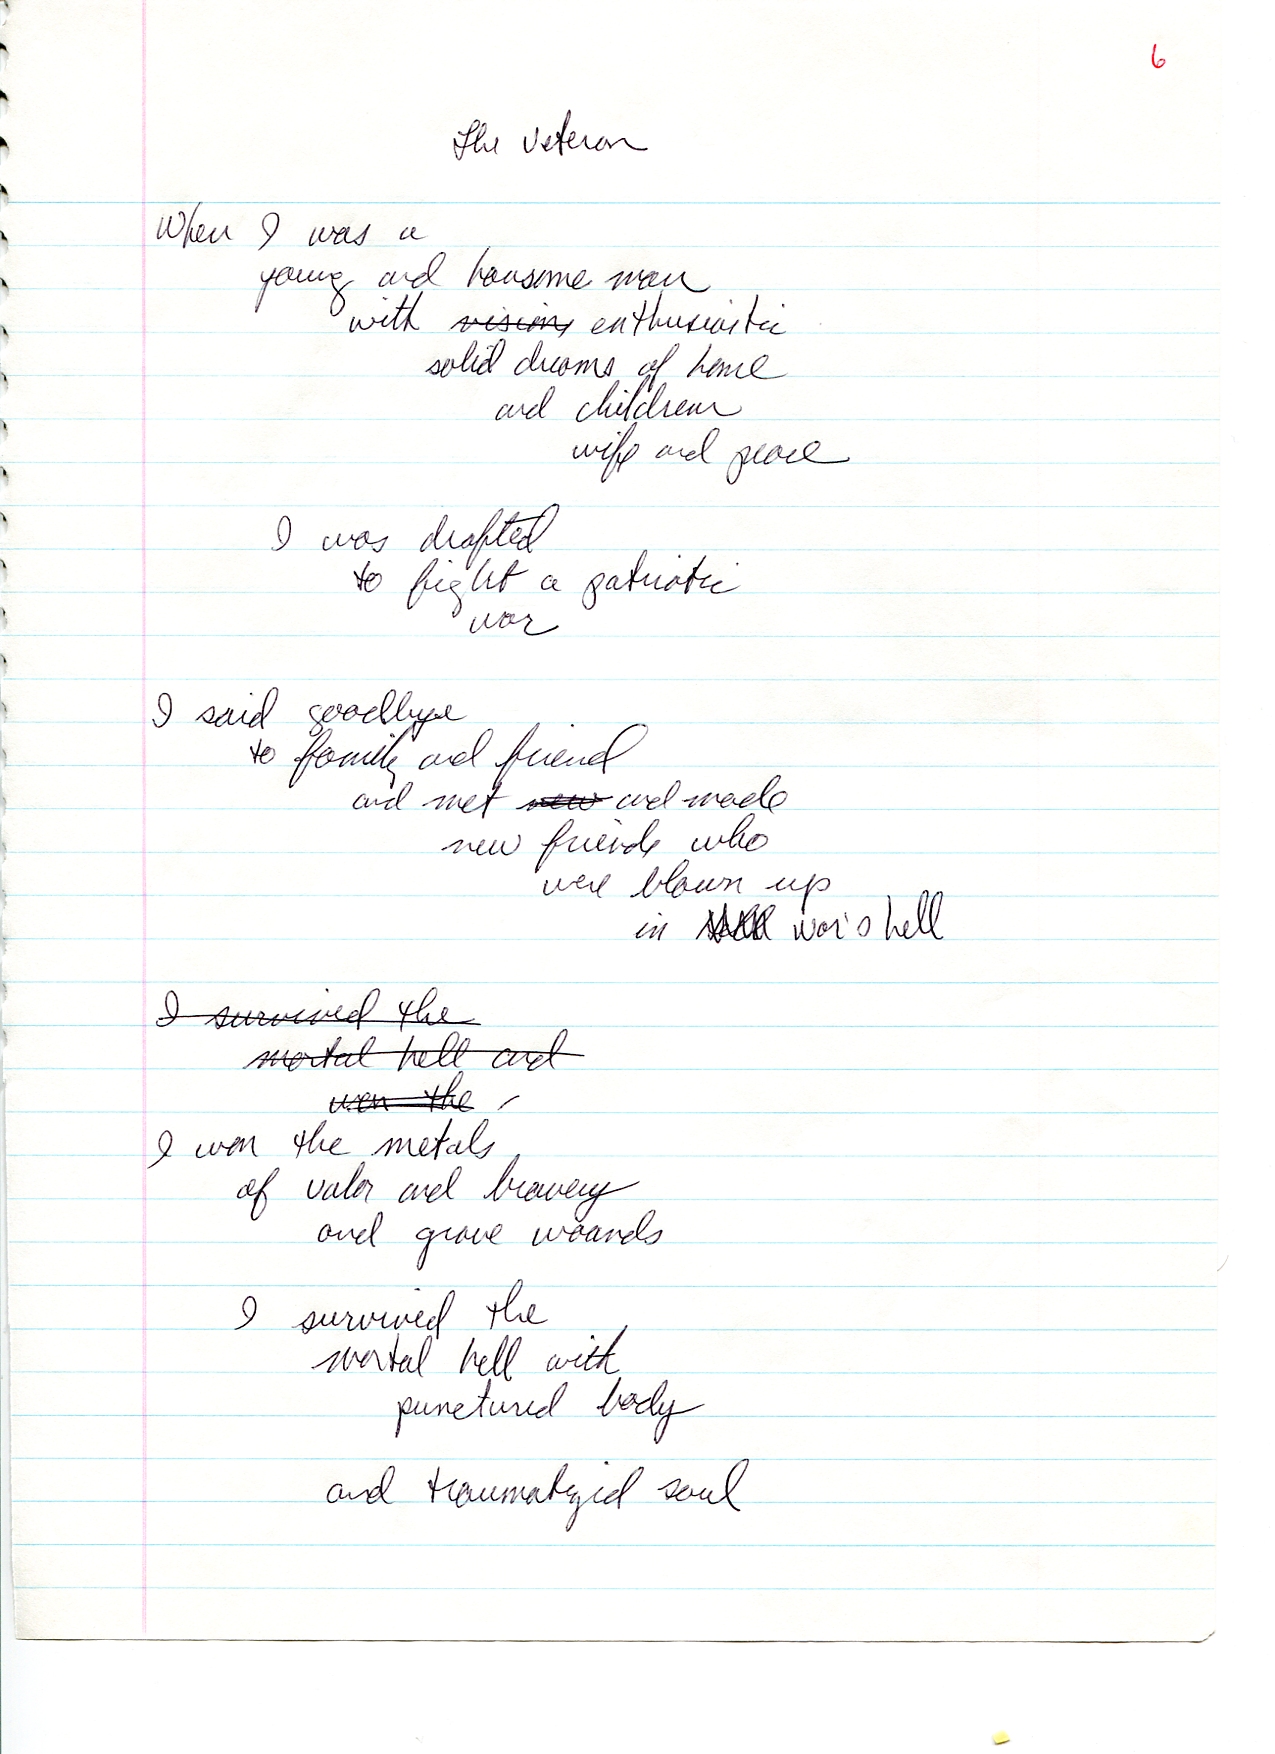 6
The Veteran
When I was a
young and hansome man
with visions enthusiastic
solid dreams of home
and children
wife and peace
I was drafted
to fight a patriotic
war
I said goodbye
to family and friend
and met new and made
new friends who
were blown up
in war's hell
I survived the
mortal hell and
won the
I won the metals
of valor and bravery
and grave wounds
I survived the
mortal hell with
punctured body
and traumatized soul